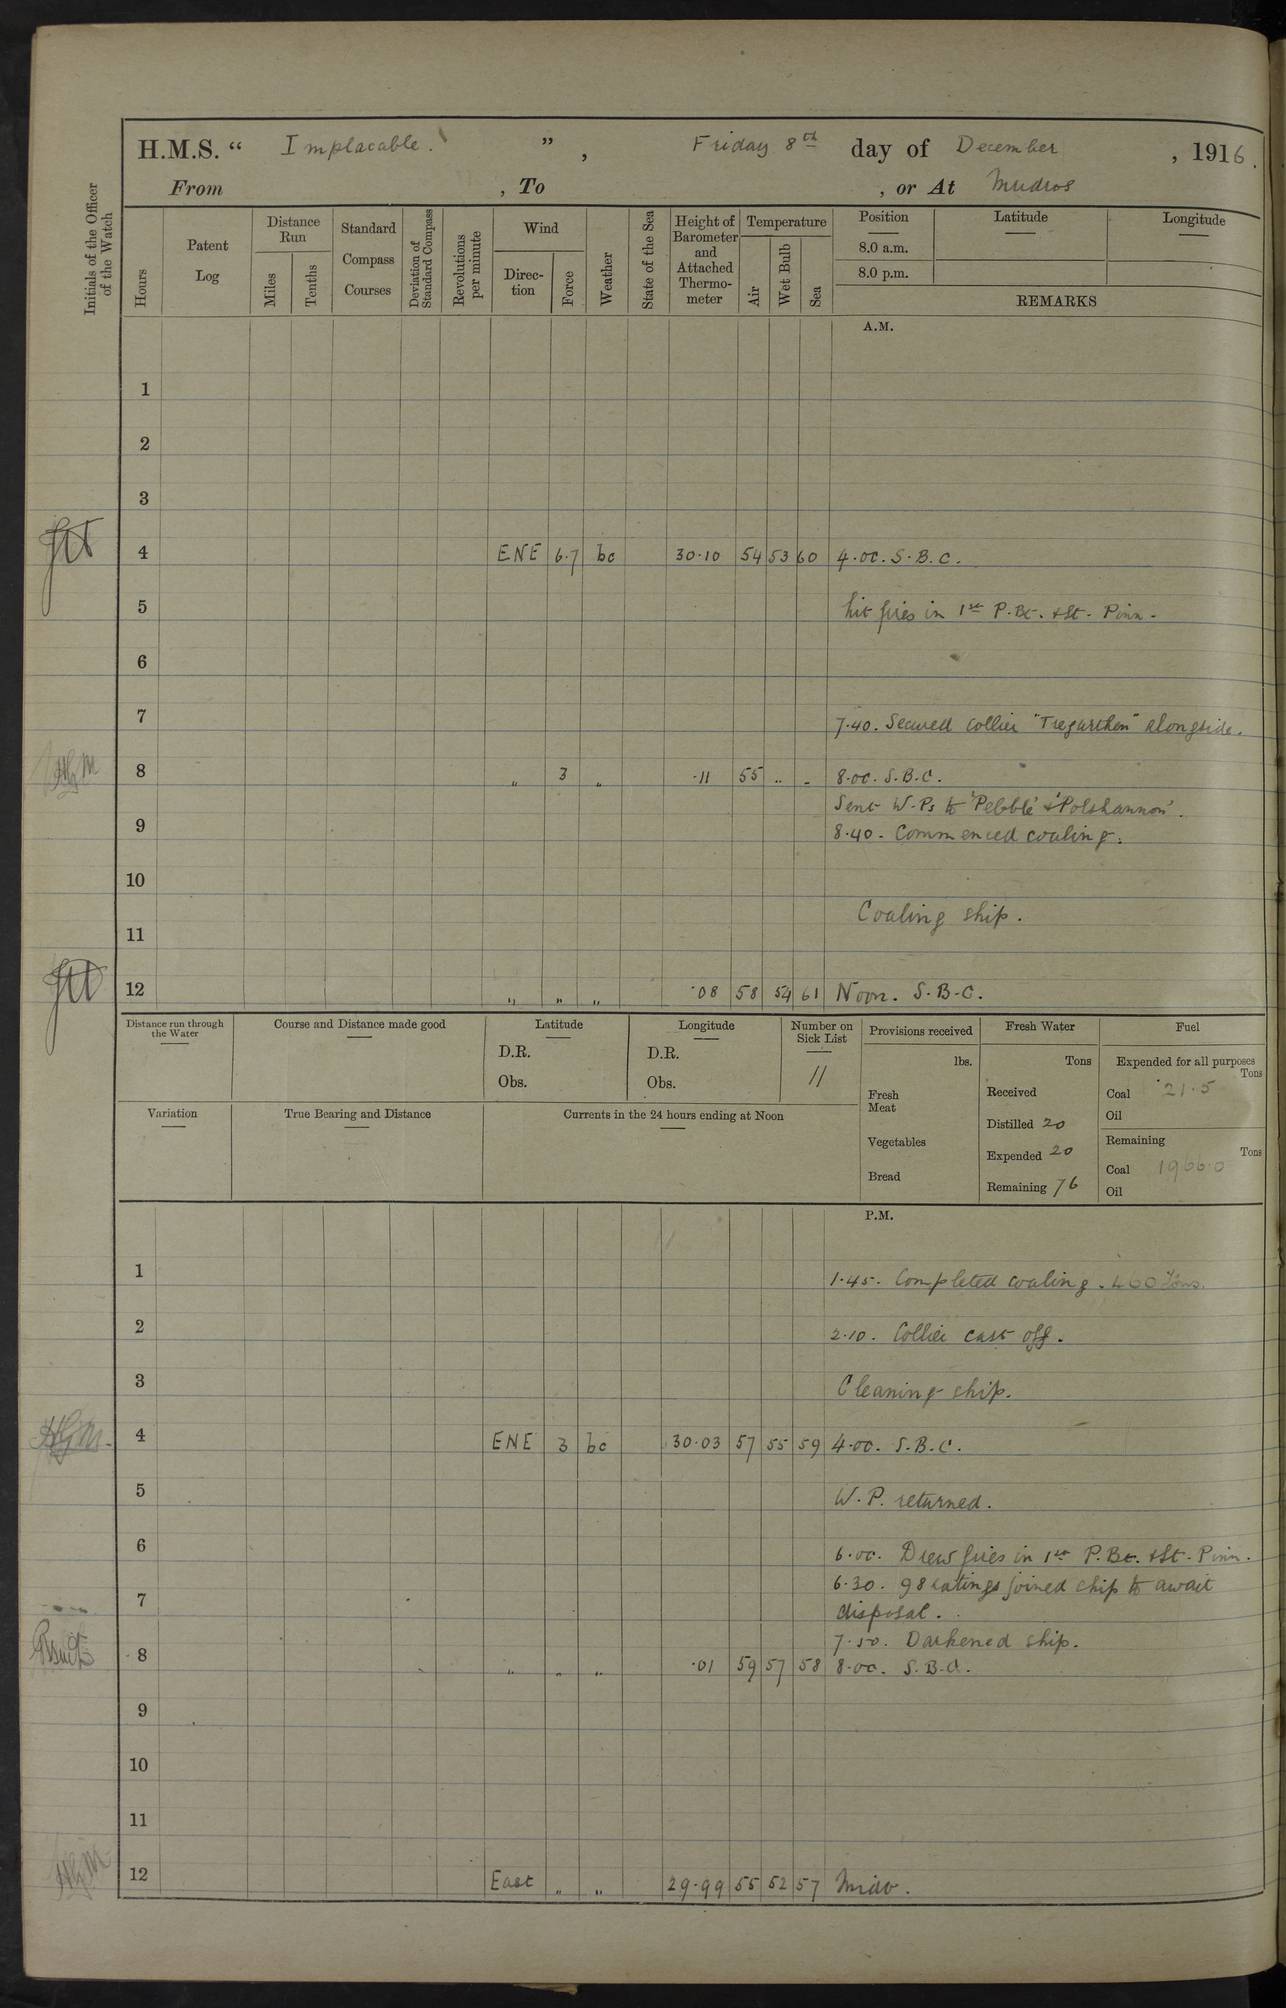 H.M.S. “ Implacable. ” , Friday 8th day of December , 1916.
From , To , or At Mudros
Initials of the Officer of the Watch
Hours
Patent Log
Distance Run
Miles
Tenths
Standard Compass Courses
Deviation of Standard Compass
Revolutions per minute
Wind
Direction
Force
Weather
State of the Sea
Height of Barometer and Attached Thermo-meter
Temperature
Air
Wet Bulb
Sea
Position Latitude Longitude
8.0 a.m.
8.0 p.m.
REMARKS
A.M.
1
2
3
4 ENE 6.7 bc 30.10 54 53 60 4.00. S.B.C.
5 lit fires in 1st P.Bt. & St. Pinn.
6
7 7.40. Secured collier "Tregarthen" alongside.
8 „ 3 „ .11 55 „ „ 8.00. S.B.C.
Sent W.Ps to 'Pebble' & 'Polshannon'.
9 8.40. Commenced coaling.
10
Coaling ship.
11
12 „ „ „ .08 58 54 61 Noon. S.B.C.
Distance run through the Water
Course and Distance made good
Latitude
D.R.
Obs.
Longitude
D.R.
Obs.
Number on Sick List
11
Provisions received
lbs.
Fresh Meat
Vegetables
Bread
Fresh Water
Tons
Received
Distilled 20
Expended 20
Remaining 76
Fuel
Expended for all purposes
Tons
Coal 21.5
Oil
Remaining
Tons
Coal 1966.0
Oil
Variation
True Bearing and Distance
Currents in the 24 hours ending at Noon
P.M.
1 1.45. Completed coaling. 460 Tons.
2 2.10. Collier cast off.
3 Cleaning ship.
4 ENE 3 bc 30.03 57 55 59 4.00. S.B.C.
5 W.P. returned.
6 6.00. Drew fires in 1st P.Bt. & St. Pinn.
6.30. 98 ratings joined ship to await
7 disposal.
7.50. Darkened ship.
8 „ „ „ .01 59 57 58 8.00. S.B.C.
9
10
11
12 East „ „ 29.99 55 52 57 Midt.